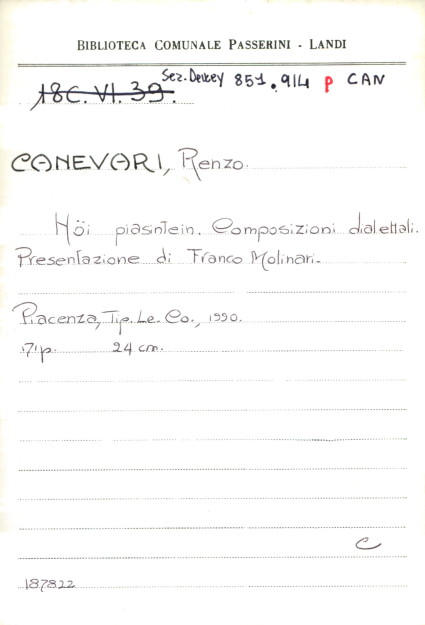 BIBLIOTECA COMUNALE PASSERINI - LANDI
18C. VI. 39. Sez. Dewey 851.914 p CAN
CANEVARI, Renzo.
Nöi piasintein. Composizioni dialettali.
Presentazione di Franco Molinari.
Piacenza, Tip. Le. Co., 1990.
71 p. 24 cm.
C
187822